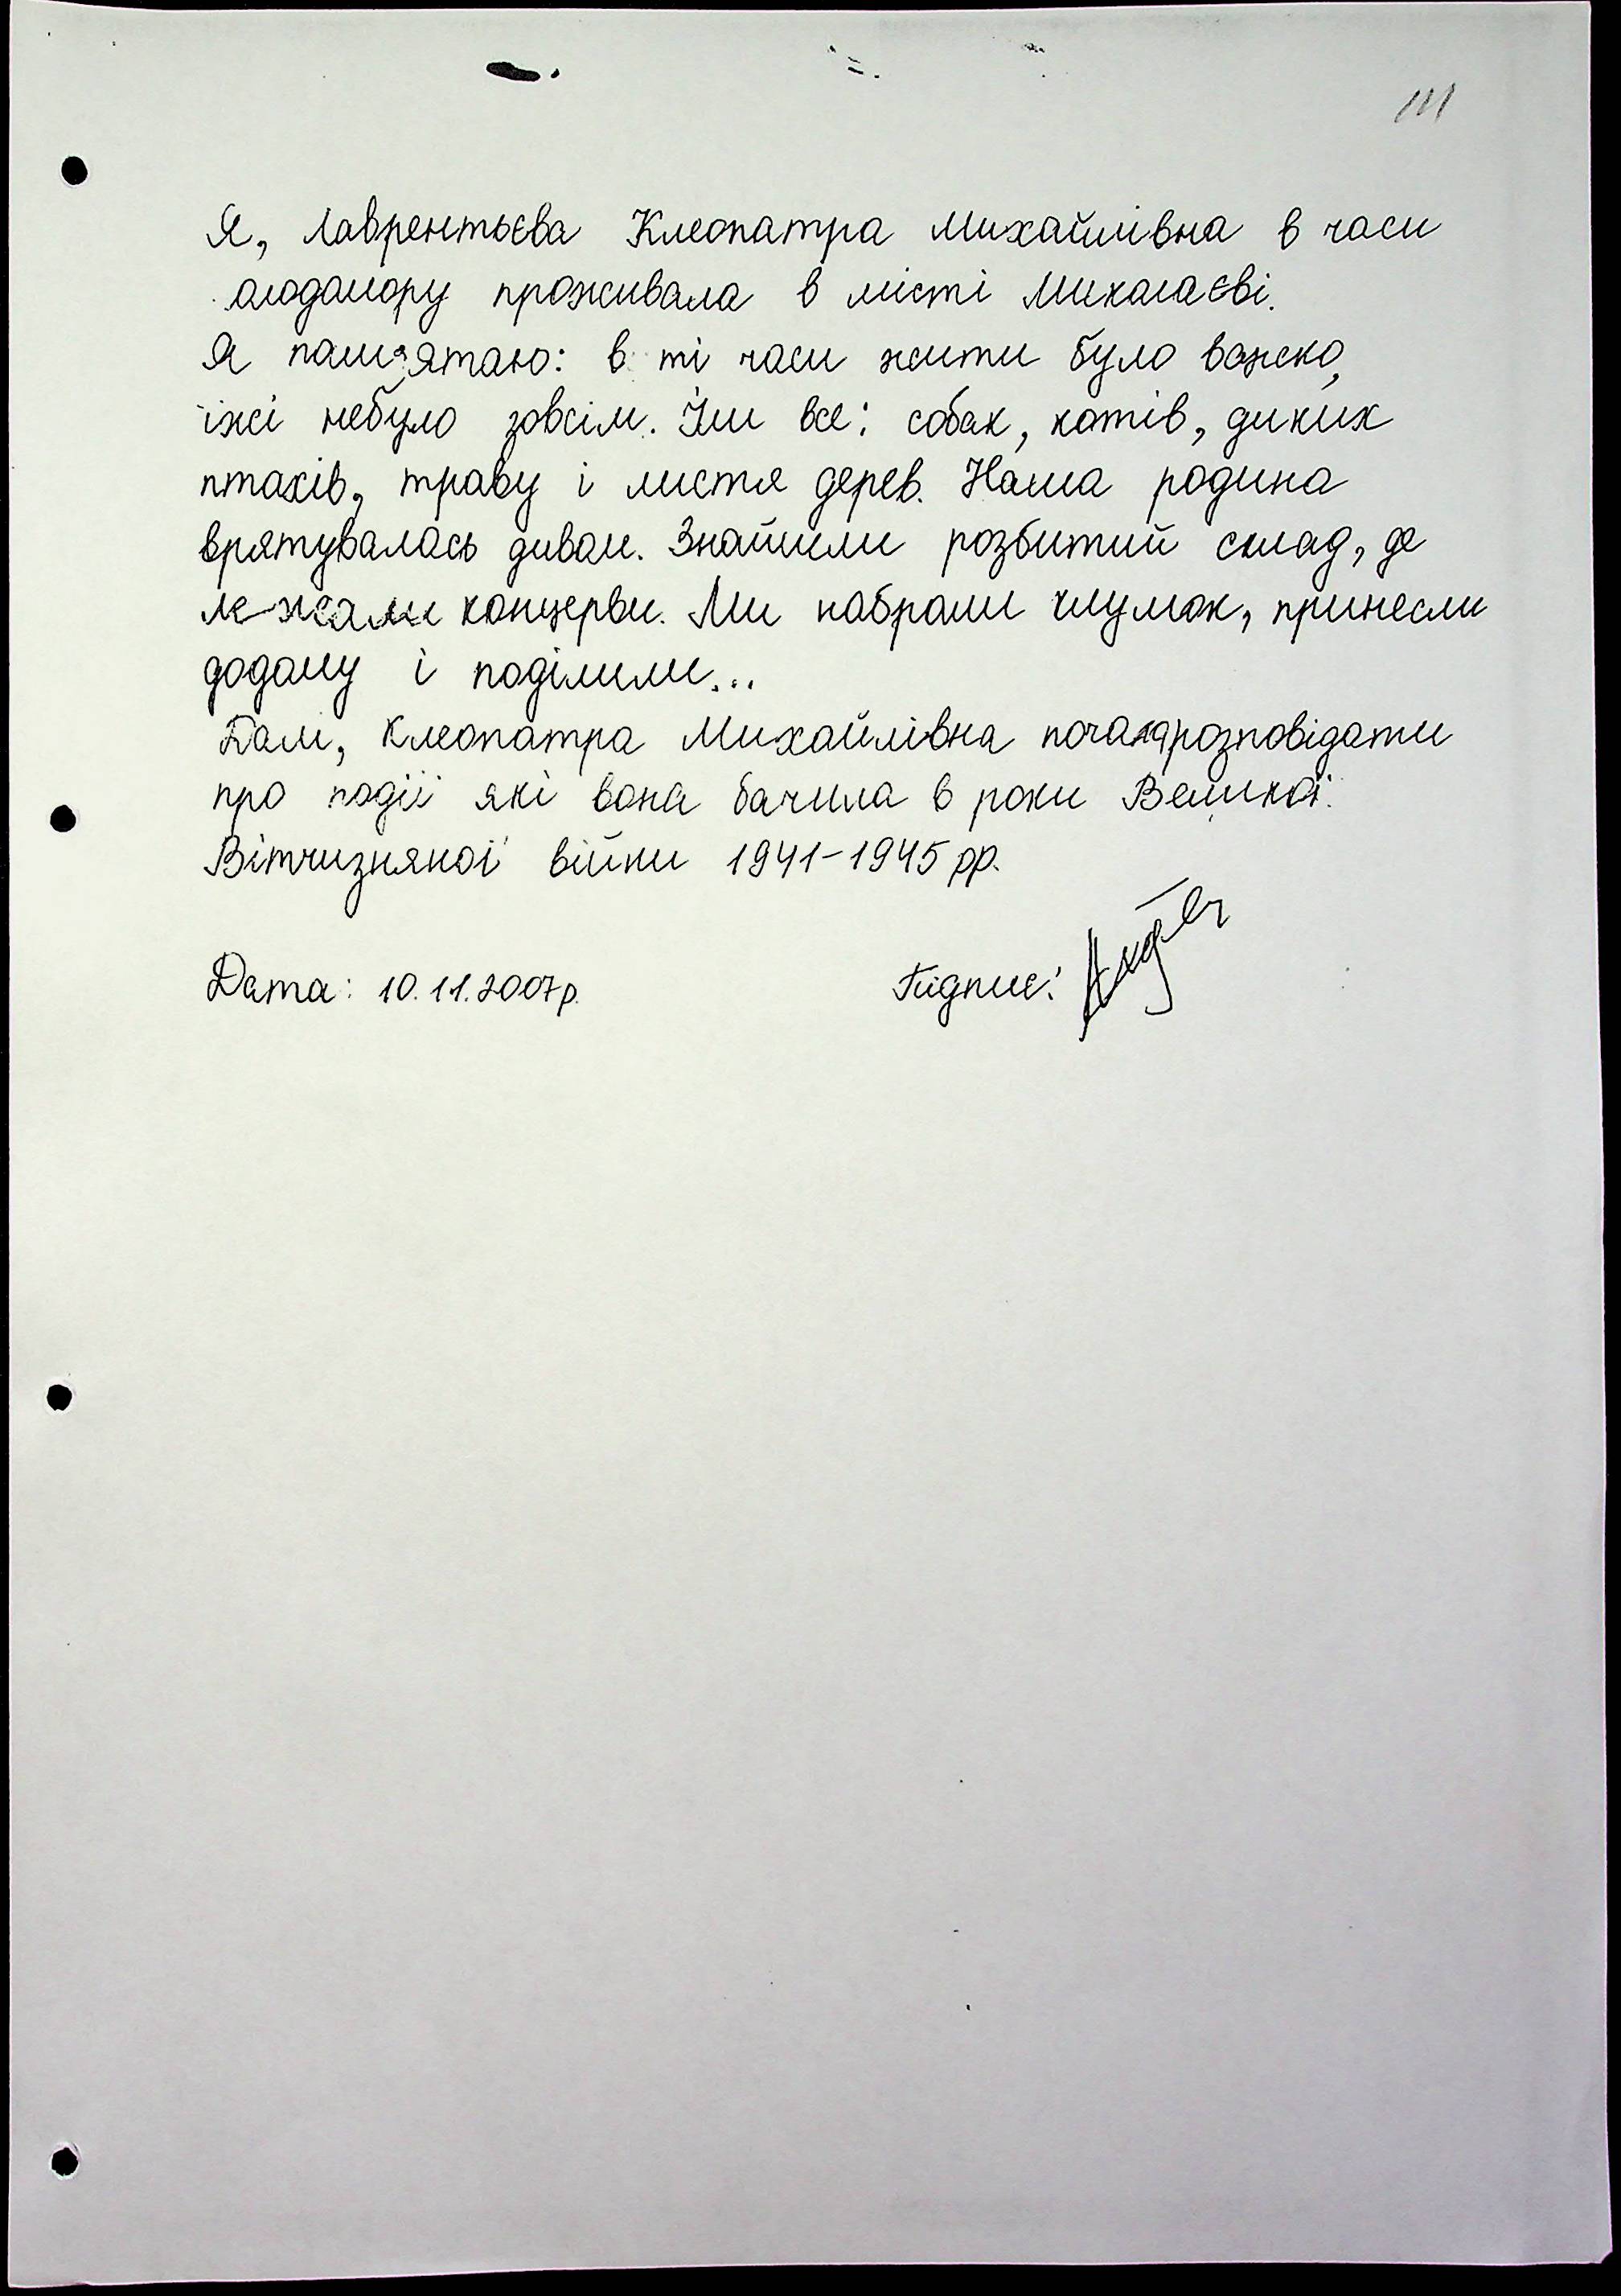 111
Я, Лаврентьєва Клеопатра Михайлівна в часи
голодомору проживала в місті Миколаєві.
Я пам'ятаю: в ті часи жити було важко,
їжі небуло зовсім. Їли все: собак, котів, диких
птахів, траву і листя дерев. Наша родина
врятувалась дивом. Знайшли розбитий склад, де
лежали концерви. Ми набрали клумок, принесли
додому і поділили...
Далі, Клеопатра Михайлівна почала розповідати
про події які вона бачила в роки Великої
Вітчизняної війни 1941-1945 рр.
Дата: 10.11.2007р. Підпис: